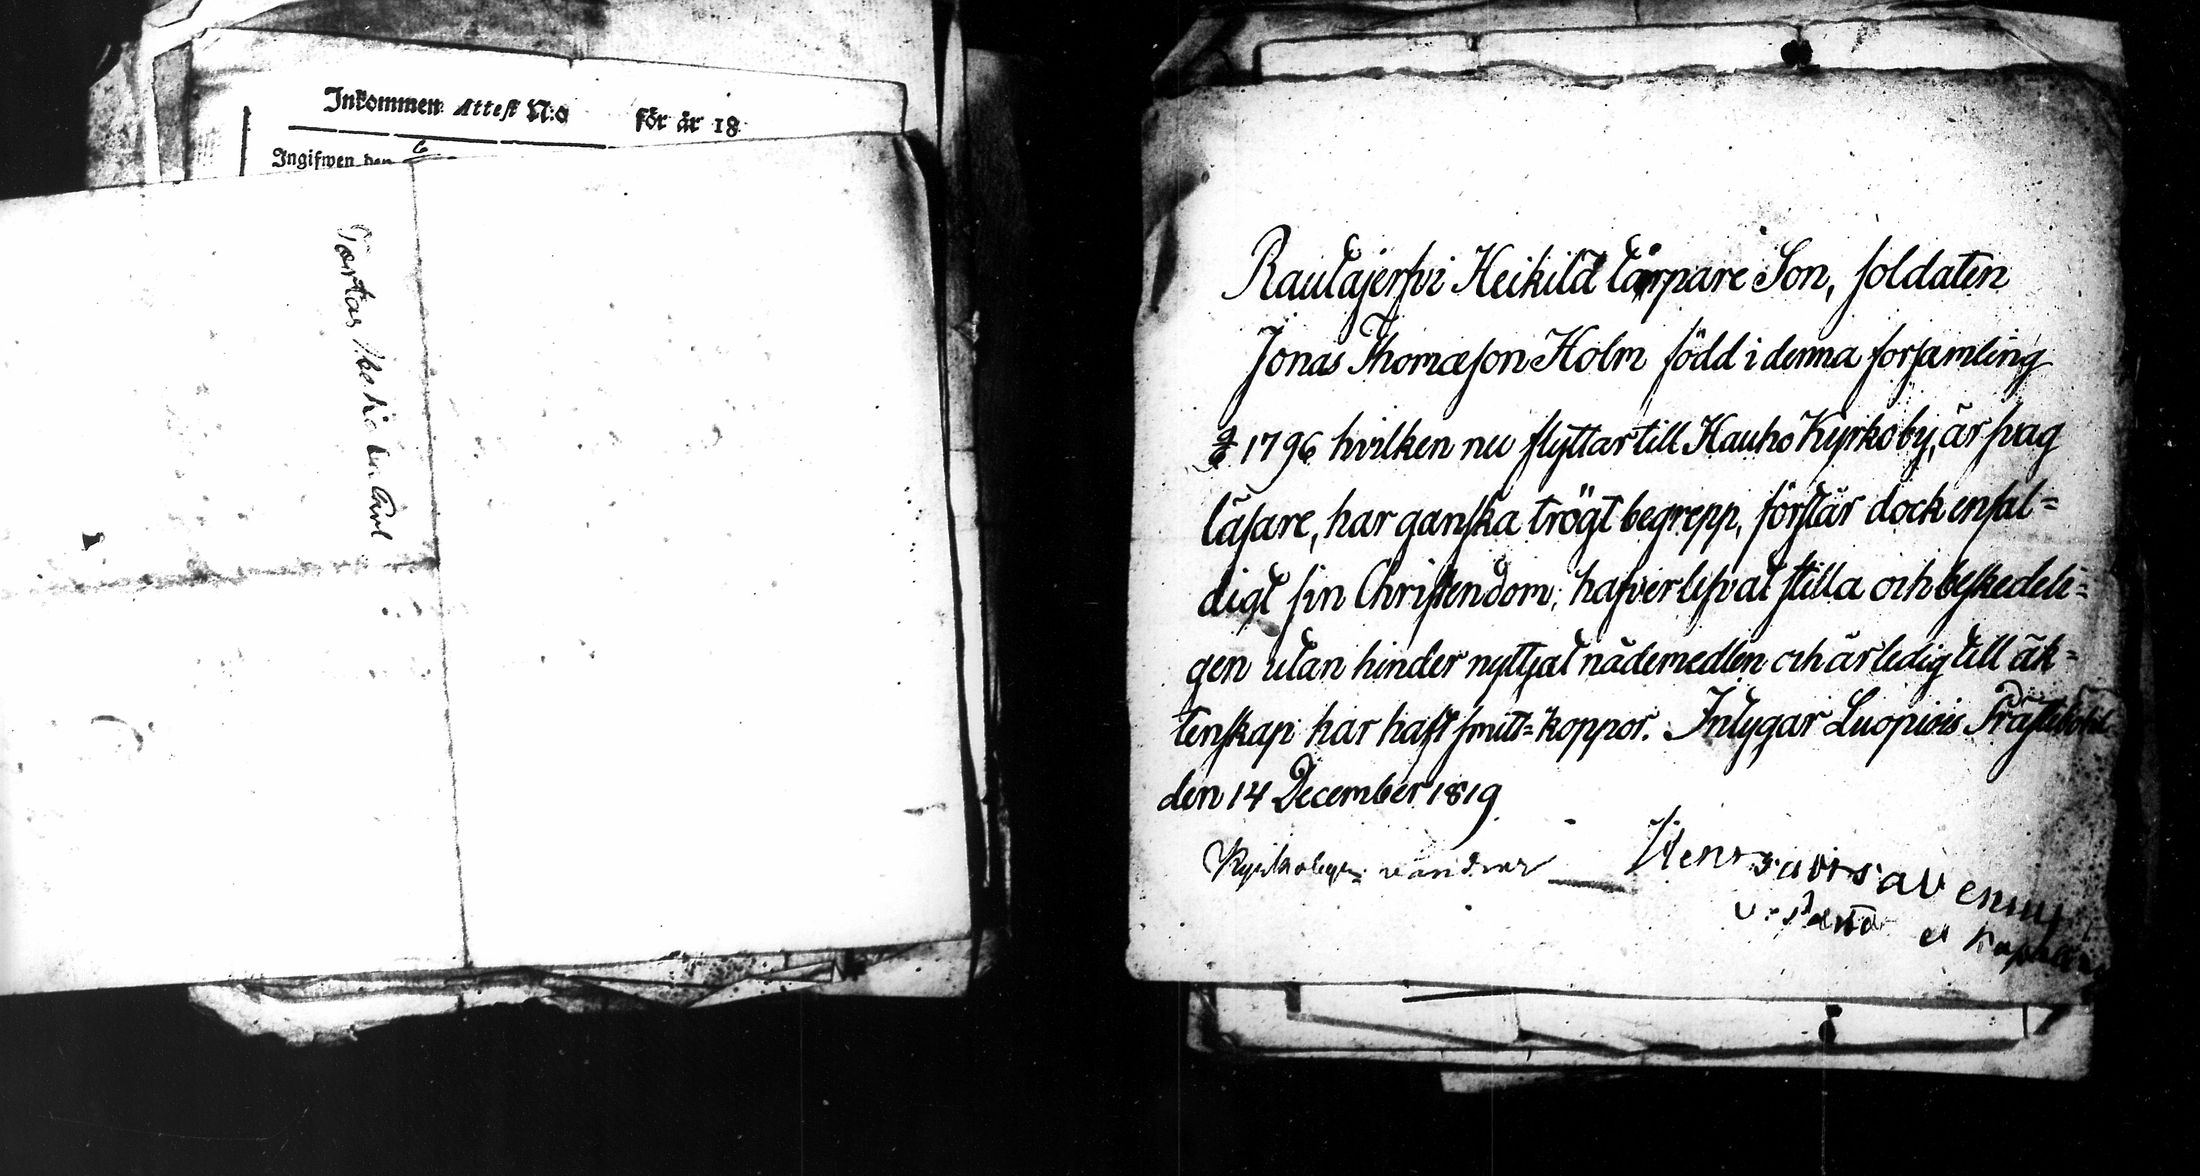 Inkommen Attest N:o för år 18
Ingifwen den 6
Rautajerfvi Heikild tårpare Son, soldaten
Jonas Thomæson Holm född i denna forsamling
1796 hvilken nu flyttar till Hauho Kyrkoby, är svag
läsare, har ganska trögt begrepp, förstår dock enfal=
digt sin Christendom, hafver lefvat stilla och beskedeli=
gen utan hinder nyttjat nådemedlen och är ledig till äk=
tenskap har haft smitt=koppor. Intygar Luopiois Prästebohl
den 14 December 1819